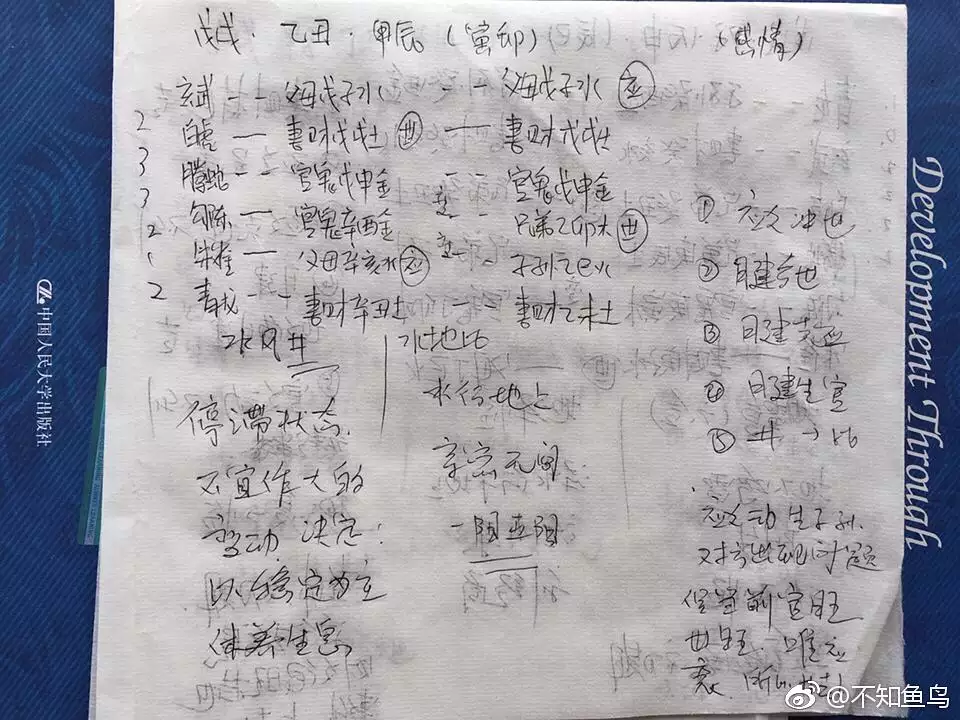 戊戌·乙丑·甲辰(寅卯) (感情)
玄武 - - 父母戊子水 - - 父母戊子水 应
2 白虎 — 妻财戊戌土 世 — 妻财戊戌土
3 腾蛇 - - 官鬼戊申金 - - 官鬼戊申金
3 勾陈 — 官鬼辛酉金 - - 兄弟乙卯木 世
2 朱雀 — 父母辛亥水 应 - - 子孙乙巳火
2 青龙 - - 妻财辛丑土 妻财乙未土
水风井
水地比
停滞状态
不宜作大的
变动 决定:
以稳定为主
休养生息
水行地上
亲密无间
① 应爻冲世
② 日建合世
③ 月建克应
④ 月建生官
⑤ 井→比
应爻动生子孙
世旺
中国人民大学出版社
Development Through
@不知鱼鸟